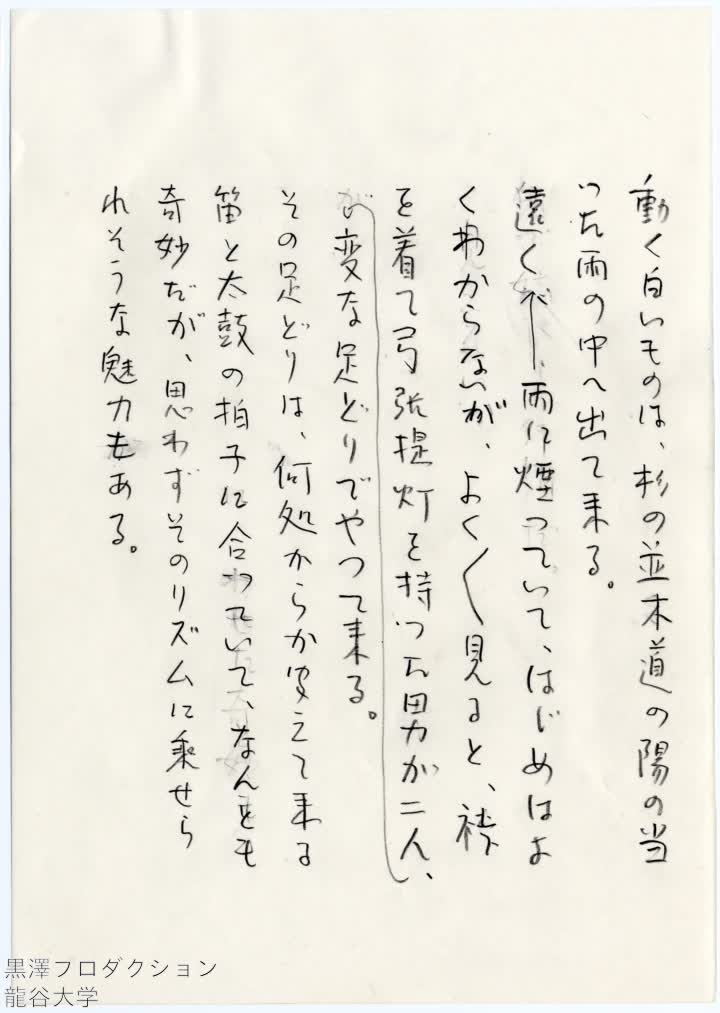 動く白いものは、杉の並木道の陽の当
った雨の中へ出て来る。
遠くで、雨に煙っていて、はじめはよ
くわからないが、よく〱見ると、裃
を着て弓張提灯を持った男が二人、
変な足どりでやって来る。
その足どりは、何処からか聞えて来る
笛と太鼓の拍子に合っていて、なんとも
奇妙だが、思わずそのリズムに乗せら
れそうな魅力もある。
黒澤プロダクション
龍谷大学